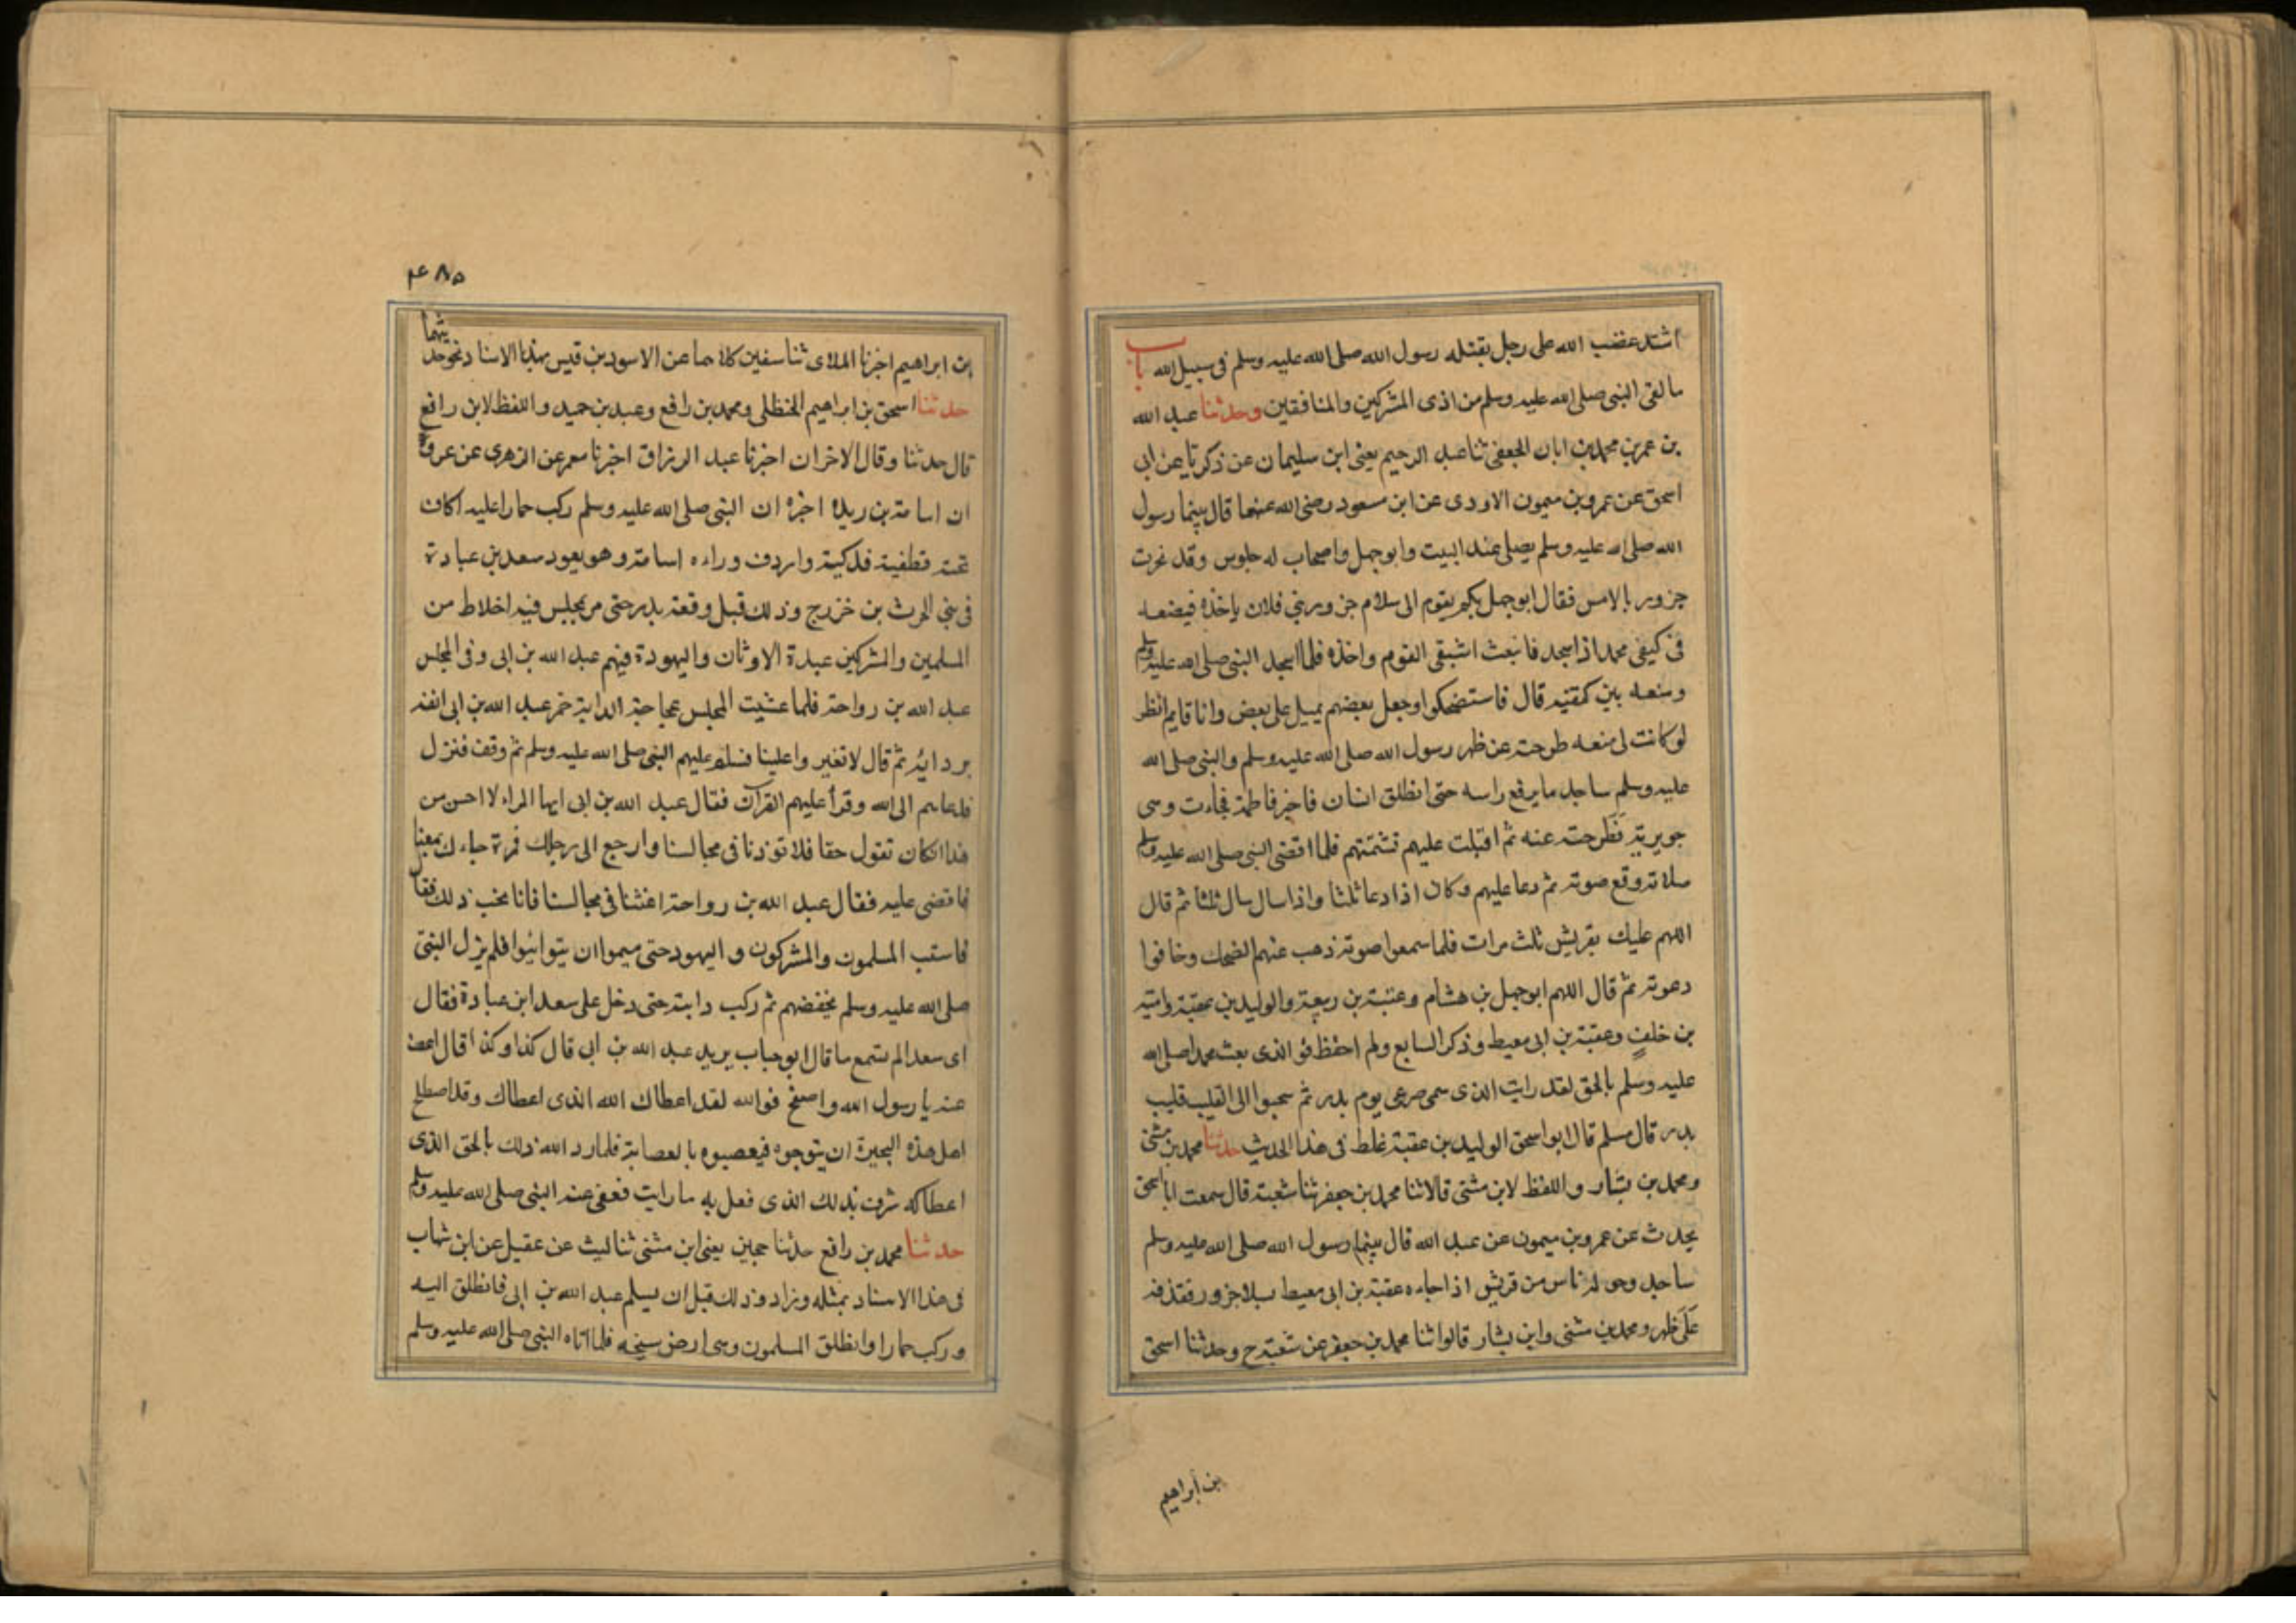 اشتد غضب الله على رجل يقتله رسول الله صلى الله عليه وسلم فى سبيل الله باب
ما لقى النبى صلى الله عليه وسلم من اذى المشركين والمنافقين وحدثنا عبد الله
بن عمر بن محمد بن ابان الجعفى ثنا عبد الرحيم يعنى ابن سليمان عن زكريا عن ابى
اسحق عن عمرو بن ميمون الاودى عن ابن مسعود رضى الله عنهما قال بينما رسول
الله صلى الله عليه وسلم يصلى عند البيت وابو جهل واصحاب له جلوس وقد نحرت
جزور بالامس فقال ابو جهل يقوم الى سلا جزور بنى فلان ياخذه فيضعه
فى كيفى محمد اذا سجد فانبعث اشقى القوم واخذه فلما سجد النبى صلى الله عليه وسلم
وضعه بين كتفيه قال فاستضحكوا وجعل بعضهم يميل على بعض وانا قايم انظر
لو كانت لى منعه طرحته عن ظهر رسول الله صلى الله عليه وسلم والنبى صلى الله
عليه وسلم ساجد ما يرفع راسه حتى انطلق انسان فاخبر فاطمة فجاءت وهى
جويرية فَطَرحته عنه ثم اقبلت عليهم تشتمهم فلما اقضى النبى صلى الله عليه وسلم
صلاته وقع صوته ثم دعا عليهم وكان اذا دعا ثلثا واذا سال سال ثلثا ثم قال
اللهم عليك بقريش ثلث مرات فلما سمعوا صوته ذهب عنهم الضحك وخافوا
دعوته ثم قال اللهم ابو جهل بن هشام وعتبة بن ربيعة والوليد بن عقبة وامية
بن خلفٍ وعقبة بن ابى معيط وذكر السابع ولم احفظ فو الذى بعث محمدا صلى الله
عليه وسلم بالحق لقد رايت الذى سمى صرعى يوم بدر ثم سحبوا الى القليب قليب
بدر قال مسلم قال ابو اسحق الوليد بن عقبة غلط فى هذا الحديث حدثنا محمد بن مثنى
ومحمد بن بشار واللفظ لابن مثنى قالا ثنا محمد بن جعفر ثنا شعبة قال سمعت ابا اسحق
يحدث عن عمرو بن ميمون عن عبد الله قال بينما رسول الله صلى الله عليه وسلم
ساجد وحوله ناس من قريش اذا جاءه عقبة بن ابى معيط بسلا جزور فقذفه
عَلَى ظهر ومحمد بن مثنى وابن بشار قالوا ثنا محمد بن جعفر عن شعبة ح وحدثنا اسحق
بن ابراهيم
۴۸۵
بن ابراهيم اخبرنا الملائى ثنا سفين كلاهما عن الاسود بن قيس بهذا الاسناد نحو حديثهما
حدثنا اسحق بن ابراهيم الحنظلى ومحمد بن رافع وعبد بن حميد واللفظ لابن رافع
قال حدثنا وقال الاخران اخبرنا عبد الرزاق اخبرنا معمر عن الزهرى عن عروة
ان اسامة بن زيده اخبره ان النبى صلى الله عليه وسلم ركب حمارا عليه اكاف
تحته قطفية فدكية واردف وراءه اسامة وهو يعود سعد بن عبادة
فى بنى الحرث بن خزرج وذلك قبل وقعة بدر حتى مر بمجلس فيه اخلاط من
المسلمين والمشركين عبدة الاوثان واليهودة فيهم عبد الله بن ابى وفى المجلس
عبد الله بن رواحة فلما غشيت المجلس عجاجة الدابة خمر عبد الله بن ابى انفه
بردائه ثم قال لا تغبروا علينا فسلم عليهم النبى صلى الله عليه وسلم ثم وقف فنزل
فدعاهم الى الله وقرأ عليهم القرآن فقال عبد الله بن ابى ايها المراء لا احسن من
هذا ان كان تقول حقا فلا توذنا فى مجالسنا وارجع الى رحلك فمن جاءك
فاقضى عليه فقال عبد الله بن رواحة اغشنا فى مجالسنا فانا نحب ذلك فقال
فاستب المسلمون والمشركون واليهود حتى هموا ان يتواثبوا فلم يزل النبى
صلى الله عليه وسلم يخفضهم ثم ركب دابته حتى دخل على سعد ابن عبادة فقال
اى سعد الم تسمع ما قال ابو حباب يريد عبد الله بن ابى قال كذا وكذا قال اعف
عنه يا رسول الله واصفح فوالله لقد اعطاك الله الذى اعطاك وقد اصطلح
اهل هذه البحيرة ان يتوجوه فيعصبوه بالعصابة فلما رد الله ذلك بالحق الذى
اعطاكه شرق بذلك الذى فعل به ما رايت فعفى عنه النبى صلى الله عليه وسلم
حدثنا محمد بن رافع حدثنا حجين يعنى ابن مثنى ثنا ليث عن عقيل عن ابن شهاب
فى هذا الاسناد بمثله وزاد وذلك قبل ان يسلم عبد الله بن ابى فانطلق اليه
وركب حمارا وانطلق المسلمون وهى ارض سبخة فلما اتاه النبى صلى الله عليه وسلم